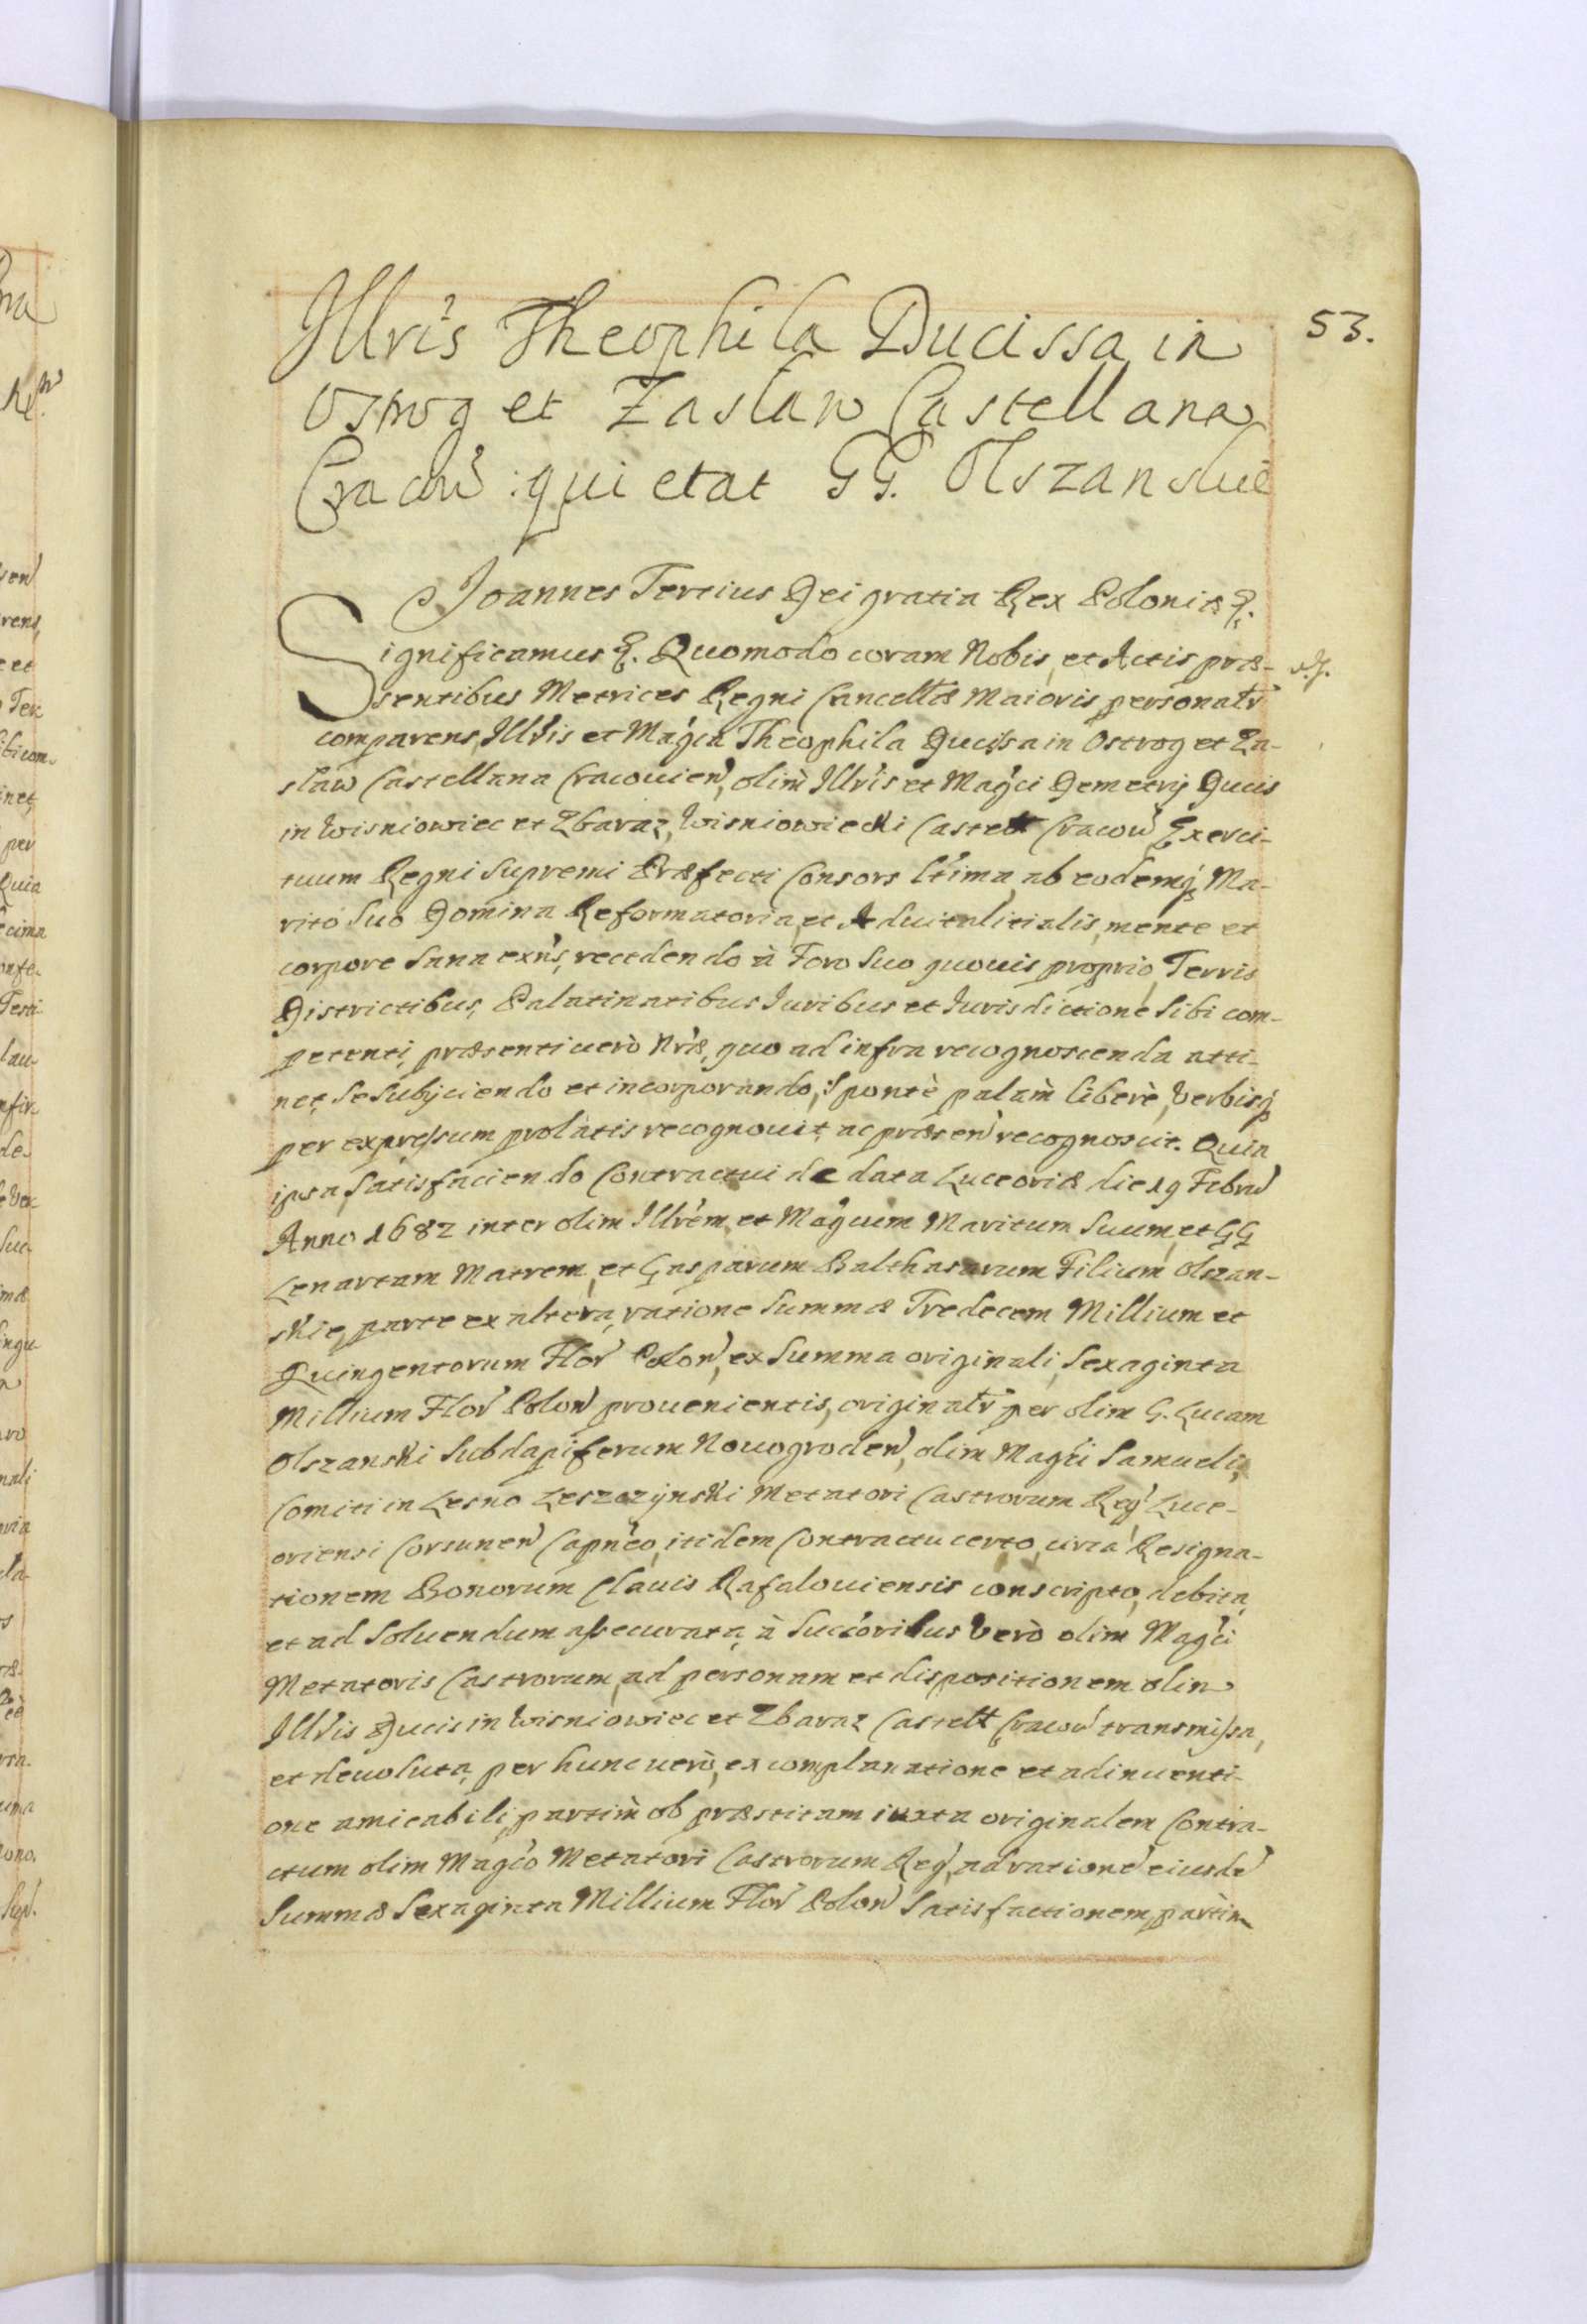 53.
Illris Theophila Ducissa in
Ostrog et Zaslaw Castellana
Cracou: quietat GG. Olszanskie
Joannes Tertius Dei gratia Rex Poloniæ &.
Significamus &. Quomodo coram Nobis, et Actis præ-
sentibus Metrices Regni Cancellæ Maioris personalr
comparens, Illris et Magca Theophila Ducissa in Ostrog et Za-
slaw Castellana Cracouien, olim Illris et Magci Demetrij Ducis
in Wisniowiec et Zbaraz, Wisniowiecki Castell Cracou Exerci-
tuum Regni Supremi Præfecti Consors ltima, ab eodemq Ma-
rito Suo Domina Reformatoria, et Aduitalitialis, mente et
corpore Sana exns, recedendo à Foro Suo quouis proprio, Terris
Districtibus, Palatinatibus Iuribus et Iurisdictione Sibi com-
petenti, præsenti uerò Nræ, quo ad infra recognoscenda atti-
net, Se Subijciendo et incorporando, Spontè palàm liberè, Verbisq
per expressum prolatis recognouit, ac præsen recognoscit. Quia
ipsa Satisfaciendo Contractui de data Luceoriæ die 19 Febru
Anno 1682 inter olim Illrem et Magcum Maritum Suum, et GG
Lenartam Matrem, et Gasparum Balthasarum Filium Olszan-
skie, parte ex altera, ratione Summæ Tredecem Millium et
Quingentorum Flor Polon, ex Summa originali, Sexaginta
Millium Flor Polon prouenientis, originalr per olim G. Lucam
Olszanski Subdapiferum Nouogroden, olim Magci Samueli,
Comiti in Lesno Leszczynski Metatori Castrorum Reg Luce-
oriensi Corsunen Capneo, itidem Contractu certo, circa Resigna-
tionem Bonorum Clauis Rafalouiensis conscripto, debita,
et ad Soluendum assecurata, à Succoribus Verò olim Magci
Metatoris Castrorum, ad personam et dispositionem olim
Illris Ducis in Wisniowiec et Zbaraz Castell Cracou transmissa,
et deuoluta, per hunc uerò, ex complanatione et adinuenti-
one amicabili, partìm ob præstitam iuxta originalem Contra-
ctum olim Magco Metatori Castrorum Reg, ad ratione eiusde
Summæ Sexaginta Millium Flor Polon Satisfactionem, partìm